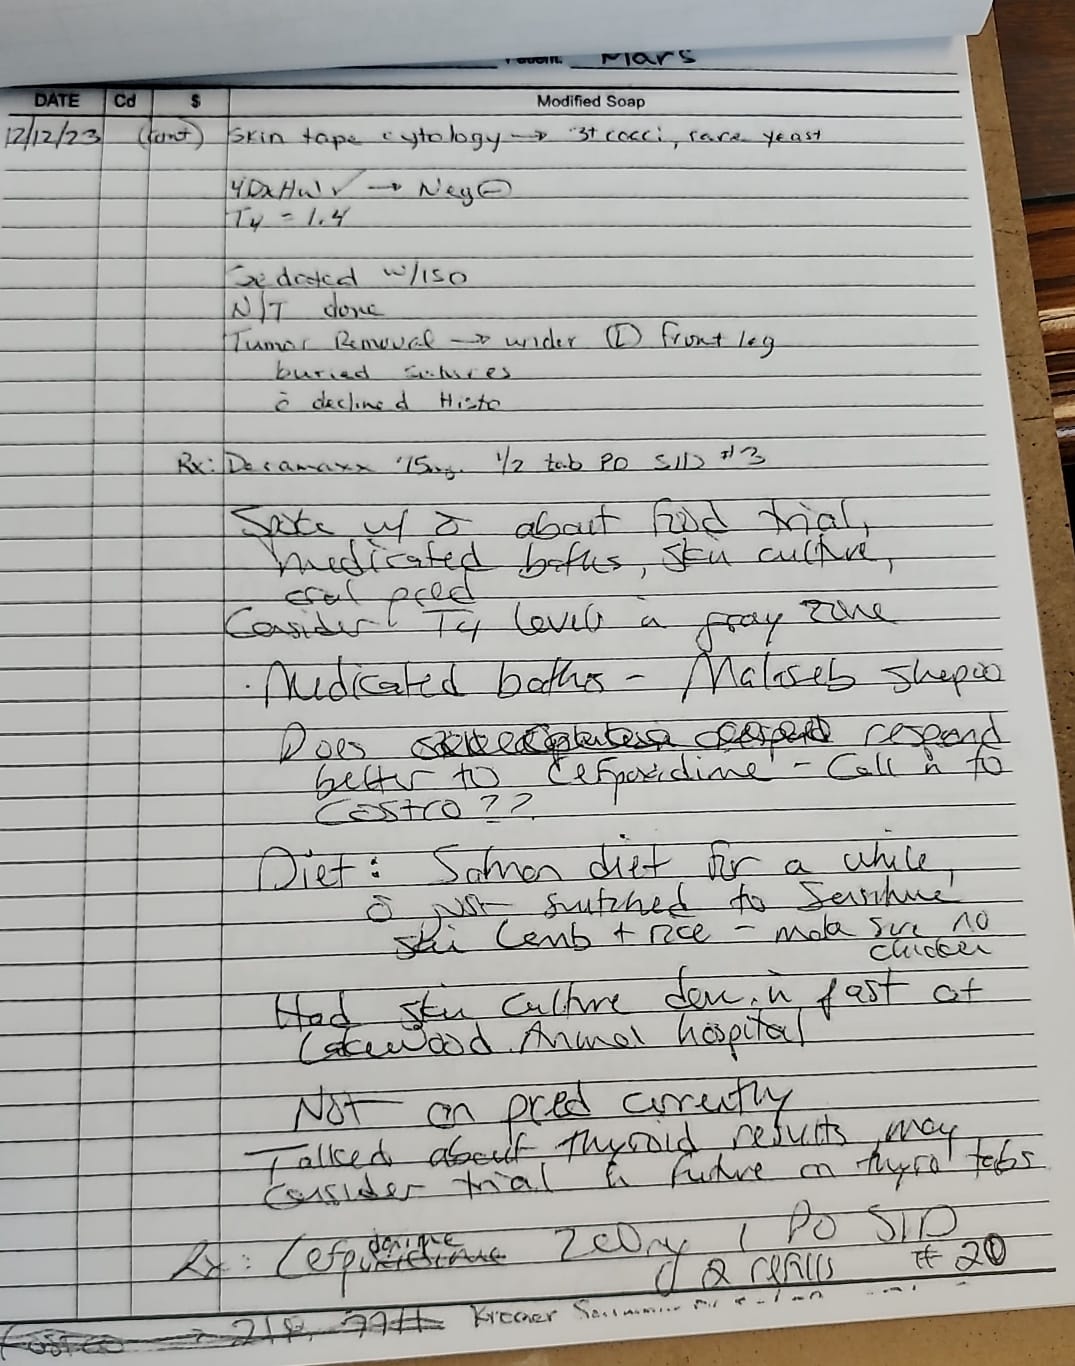 Mars
DATE Cd $ Modified Soap
12/12/23 (cont) Skin tape cytology → 3+ cocci, rare yeast
4DxHW ✓ → Neg ⊖
T4 = 1.4
Sedated w/ISO
N/T done
Tumor Removal → under Ⓛ front leg
buried sutures
ō declined Histo
Rx: Deramaxx 75mg. 1/2 tab PO SID #3
Spoke w/ ō about food trial,
medicated baths, skin culture,
oral pred
Consider T4 levels in gray zone
· Medicated baths - Malaseb shapoo
Does respond
better to Cefpoxidime - Call in to
Costco??
Diet: Salmon diet for a while,
ō just switched to Sensitive
ski Lamb + rice - make sure no
chicken
Had skin culture done in past at
Lakewood Animal hospital
Not on pred currently
Talked about thyroid results, may
consider trial in future on thyro tabs
Rx: Cefpodoxime 200mg 1 PO SID
2 refills #20
Costco → 218, 77# Kroger